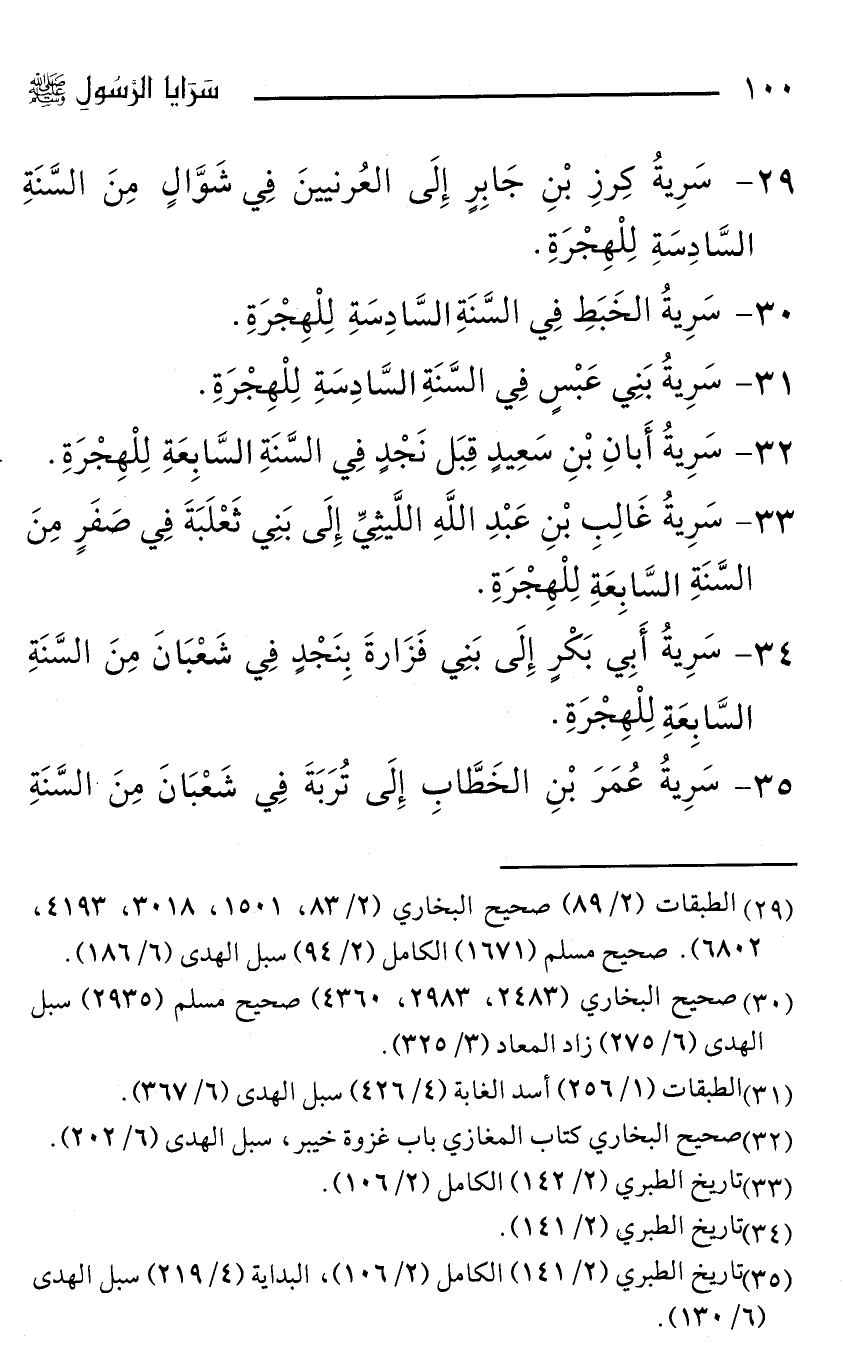 ١٠٠ سَرَايا الرَّسُولِ ﷺ
٢٩- سَرِيةُ كِرزِ بْنِ جَابِرٍ إِلَى العُرنيينَ فِي شَوَّالٍ مِنَ السَّنَةِ
السَّادِسَةِ لِلْهِجْرَةِ.
٣٠- سَرِيةُ الخَبَطِ فِي السَّنَةِ السَّادِسَةِ لِلْهِجْرَةِ.
٣١- سَرِيةُ بَنِي عَبْسٍ فِي السَّنَةِ السَّادِسَةِ لِلْهِجْرَةِ.
٣٢- سَرِيةُ أَبانِ بْنِ سَعِيدٍ قِبَل نَجْدٍ فِي السَّنَةِ السَّابِعَةِ لِلْهِجْرَةِ.
٣٣- سَرِيةُ غَالِبِ بْنِ عَبْدِ اللَّهِ اللَّيثِيِّ إِلَى بَنِي ثَعْلَبَةَ فِي صَفَرٍ مِنَ
السَّنَةِ السَّابِعَةِ لِلْهِجْرَةِ.
٣٤- سَرِيةُ أَبِي بَكْرٍ إِلَى بَنِي فَزَارةَ بِنَجْدٍ فِي شَعْبَانَ مِنَ السَّنَةِ
السَّابِعَةِ لِلْهِجْرَةِ.
٣٥- سَرِيةُ عُمَرَ بْنِ الخَطَّابِ إِلَى تُرَبَةَ فِي شَعْبَانَ مِنَ السَّنَةِ
(٢٩) الطبقات (٢/ ٨٩) صحيح البخاري (٢/ ٨٣، ١٥٠١، ٣٠١٨، ٤١٩٣،
٦٨٠٢). صحيح مسلم (١٦٧١) الكامل (٢/ ٩٤) سبل الهدى (٦/ ١٨٦).
(٣٠) صحيح البخاري (٢٤٨٣، ٢٩٨٣، ٤٣٦٠) صحيح مسلم (٢٩٣٥) سبل
الهدى (٦/ ٢٧٥) زاد المعاد (٣/ ٣٢٥).
(٣١) الطبقات (١/ ٢٥٦) أسد الغابة (٤/ ٤٢٦) سبل الهدى (٦/ ٣٦٧).
(٣٢) صحيح البخاري كتاب المغازي باب غزوة خيبر، سبل الهدى (٦/ ٢٠٢).
(٣٣) تاريخ الطبري (٢/ ١٤٢) الكامل (٢/ ١٠٦).
(٣٤) تاريخ الطبري (٢/ ١٤١).
(٣٥) تاريخ الطبري (٢/ ١٤١) الكامل (٢/ ١٠٦)، البداية (٤/ ٢١٩) سبل الهدى
(٦/ ١٣٠).